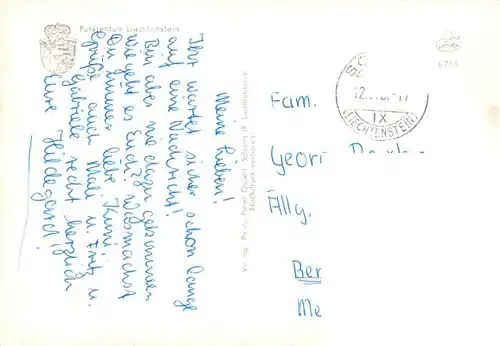 Fürstentum Liechtenstein
Meine Lieben!
Ihr wartet sicher schon lange
auf eine Nachricht!
Bin aber nie dazu gekommen
wie geht es Euch? Was machst
Du immer liebe Kuni
Grüße auch Mali u. Fritz u.
Gabriele recht herzlich
Eure Hildegard!
Verlag Peter Schaan (F. Liechtenstein)
Nachdruck verboten!
12.
IX
(LIECHTENSTEIN)
Fam.
Geor
Allg.
Ber
Me